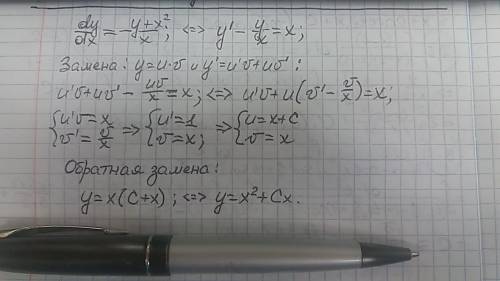 dy/dx = -y+x²/x; <=> y' - y/x = x;
Замена: y=u·v и y'=u'v+uv':
u'v+uv' - uv/x = x; <=> u'v+u(v' - v/x)=x;
{u'v=x {u'=1 {u=x+c
{v'=v/x => {v=x; => {v=x
Обратная замена:
y=x(C+x); <=> y=x²+Cx.